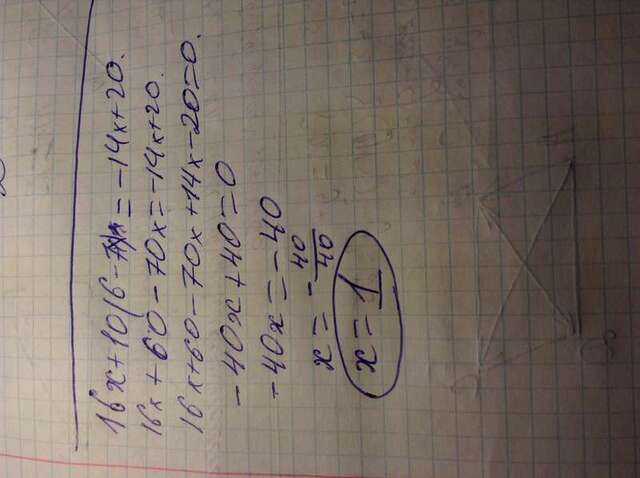 16x+10(6-7x)=-14x+20.
16x+60-70x=-14x+20.
16x+60-70x+14x-20=0.
-40x+40=0
-40x=-40
x=-40/40
x=1